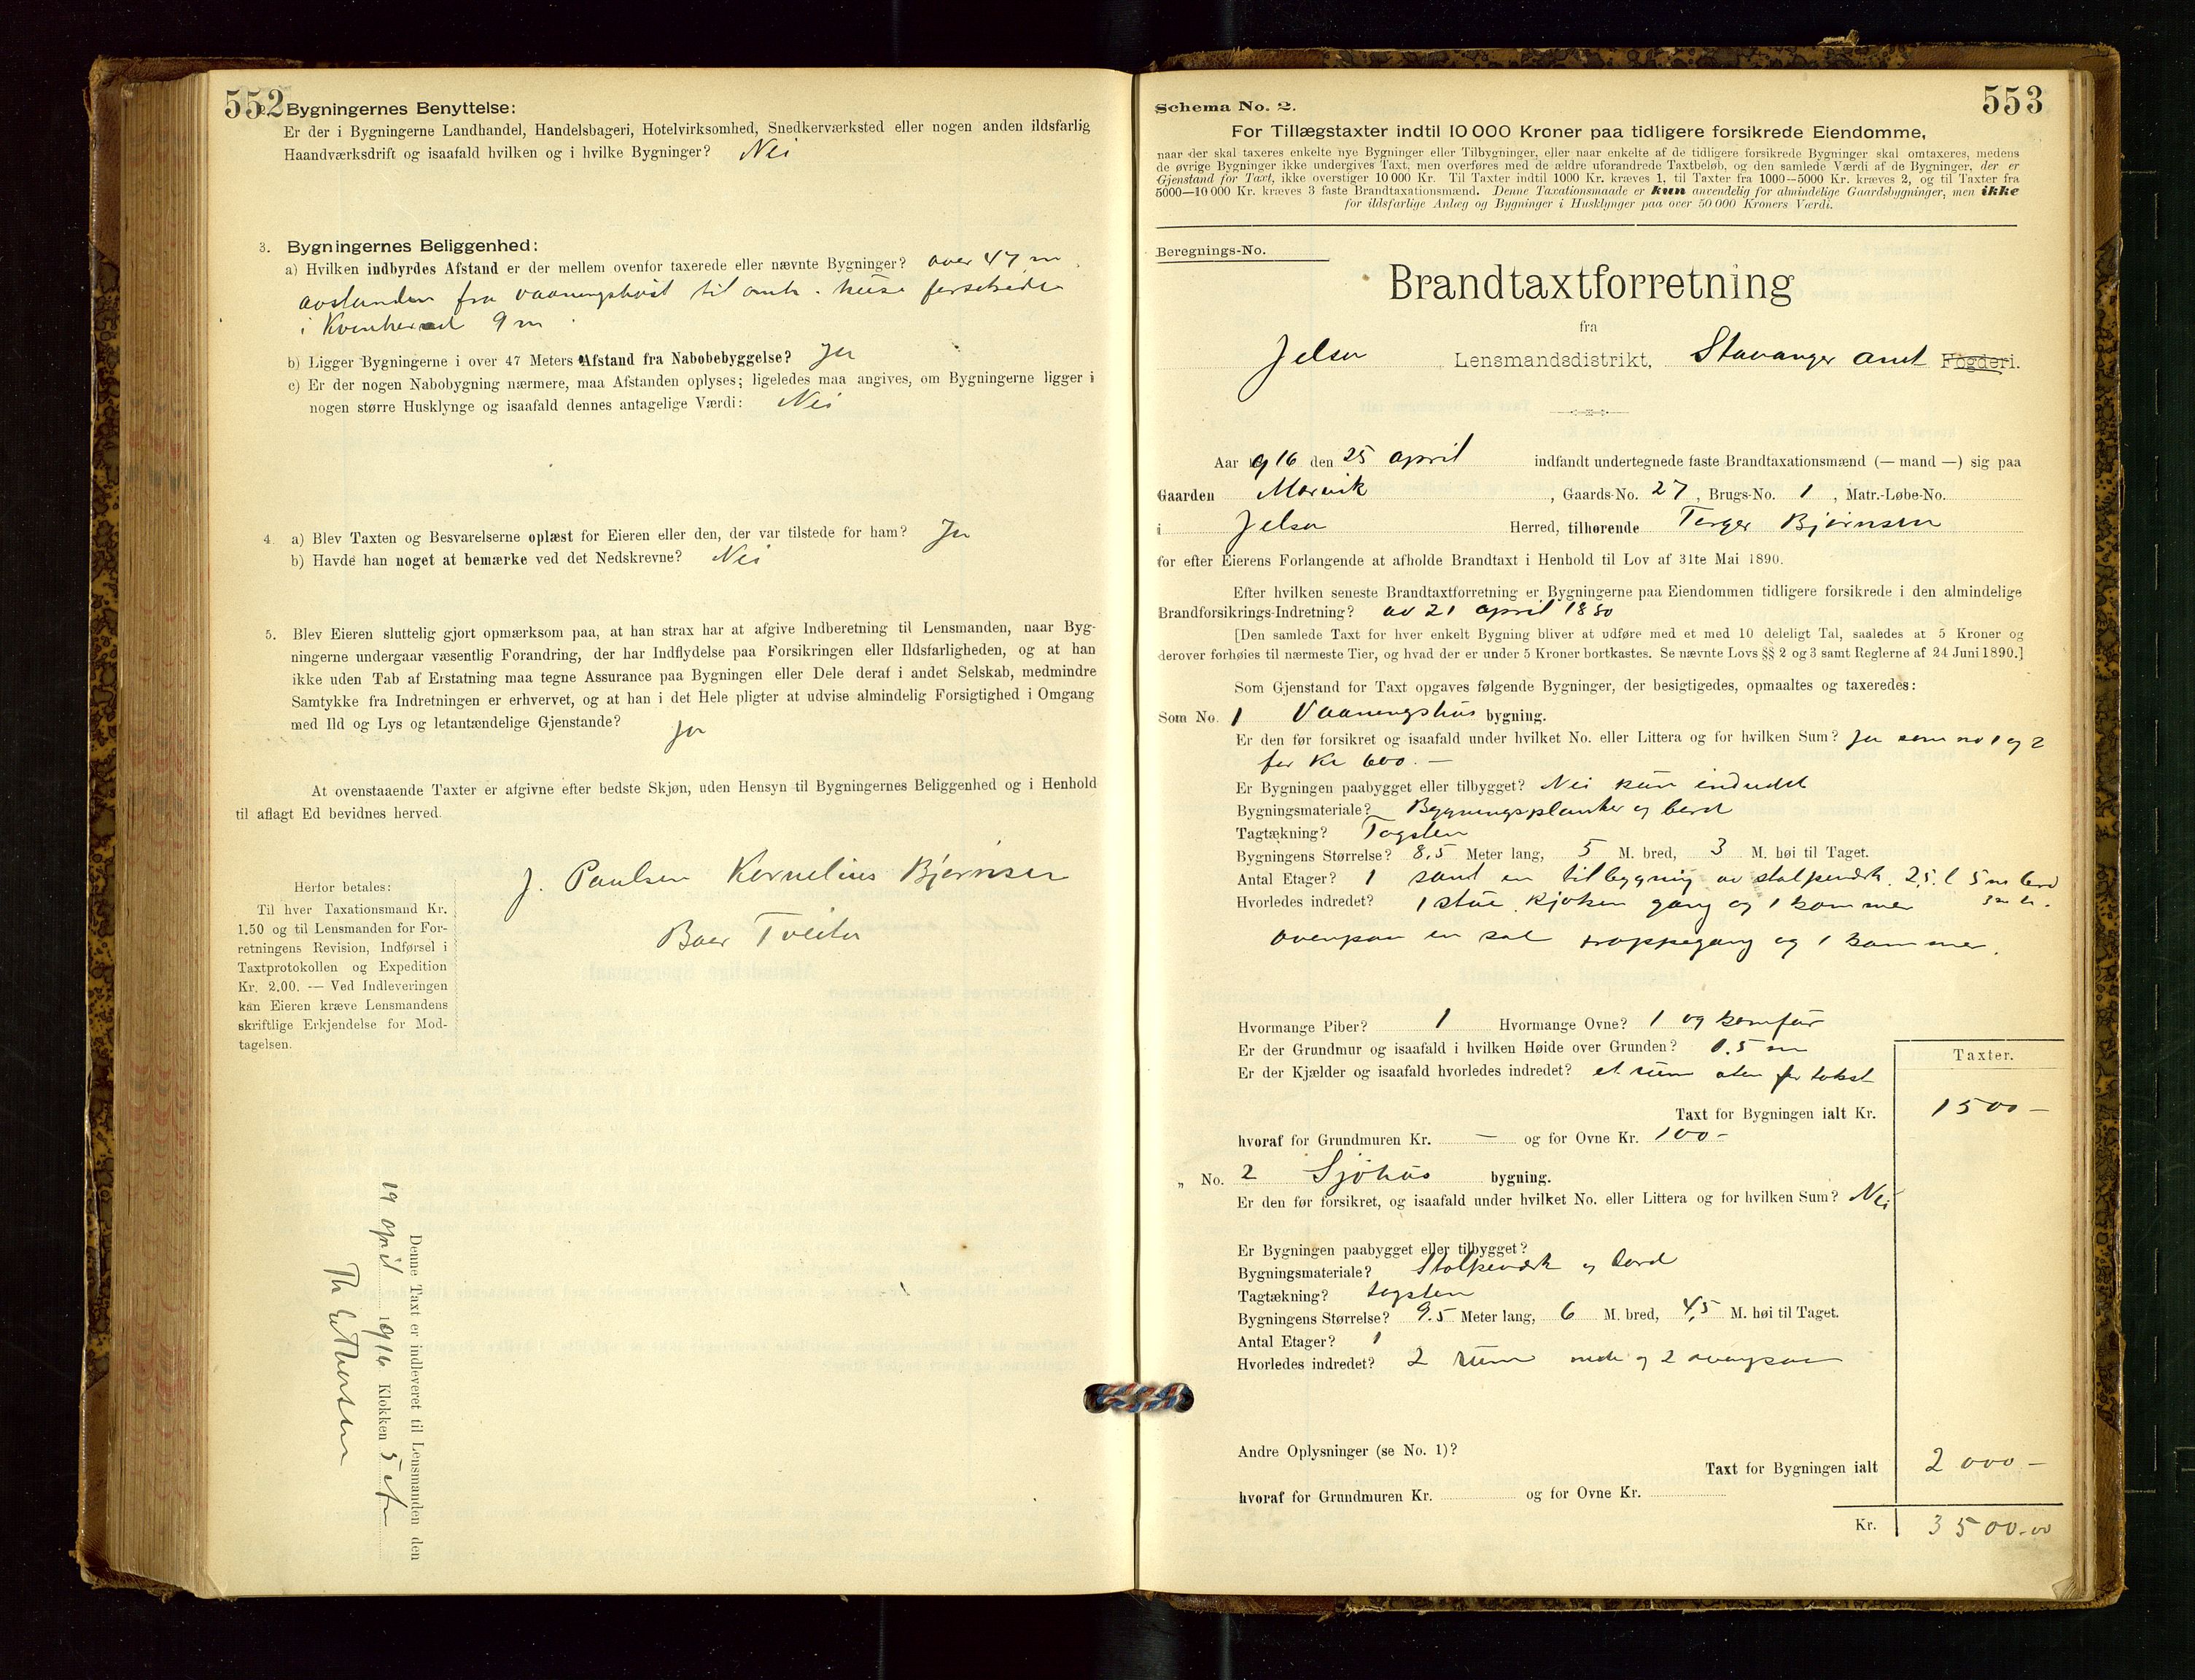 552
2. Bygningernes Benyttelse:
Er der i Bygningerne Landhandel, Handelsbageri, Hotelvirksomhed, Snedkerværksted eller nogen anden ildsfarlig
Haandværksdrift og isaafald hvilken og i hvilke Bygninger? Nei
3. Bygningernes Beliggenhed:
a) Hvilken indbyrdes Afstand er der mellem ovenfor taxerede eller nævnte Bygninger? over 47 m
avstanden fra vaaningshuset til
i 9 m
b) Ligger Bygningerne i over 47 Meters Afstand fra Nabobebyggelse? Ja
c) Er der nogen Nabobygning nærmere, maa Afstanden oplyses; ligeledes maa angives, om Bygningerne ligger i
nogen større Husklynge og isaafald dennes antagelige Værdi: Nei
4. a) Blev Taxten og Besvarelserne oplæst for Eieren eller den, der var tilstede for ham? Ja
b) Havde han noget at bemærke ved det Nedskrevne? Nei
5. Blev Eieren sluttelig gjort opmærksom paa, at han strax har at afgive Indberetning til Lensmanden, naar Byg-
ningerne undergaar væsentlig Forandring, der har Indflydelse paa Forsikringen eller Ildsfarligheden, og at han
ikke uden Tab af Erstatning maa tegne Assurance paa Bygningen eller Dele deraf i andet Selskab, medmindre
Samtykke fra Indretningen er erhvervet, og at han i det Hele pligter at udvise almindelig Forsigtighed i Omgang
med Ild og Lys og letantændelige Gjenstande?
Ja
At ovenstaaende Taxter er afgivne efter bedste Skjøn, uden Hensyn til Bygningernes Beliggenhed og i Henhold
til aflagt Ed bevidnes herved.
J. Paulsen Kornelius Bjørnsen
Tveita
Herfor betales:
Til hver Taxationsmand Kr.
1.50 og til Lensmanden for For-
retningens Revision, Indførsel i
Taxtprotokollen og Expedition
Kr. 2.00. — Ved Indleveringen
kan Eieren kræve Lensmandens
skriftlige Erkjendelse for Mod-
tagelsen.
Denne Taxt er indleveret til Lensmanden den
19 april 1916 Klokken 5 et
Th
553
Schema No. 2.
For Tillægstaxter indtil 10 000 Kroner paa tidligere forsikrede Eiendomme,
naar der skal taxeres enkelte nye Bygninger eller Tilbygninger, eller naar enkelte af de tidligere forsikrede Bygninger skal omtaxeres, medens
de øvrige Bygninger ikke undergives Taxt, men overføres med de ældre uforandrede Taxtbeløb, og den samlede Værdi af de Bygninger, der er
Gjenstand for Taxt, ikke overstiger 10 000 Kr. Til Taxter indtil 1000 Kr. kræves 1, til Taxter fra 1000—5000 Kr. kræves 2, og til Taxter fra
5000—10 000 Kr. kræves 3 faste Brandtaxationsmænd. Denne Taxationsmaade er kun anvendelig for almindelige Gaardsbygninger, men ikke
for ildsfarlige Anlæg og Bygninger i Husklynger paa over 50 000 Kroners Værdi.
Beregnings-No.
Brandtaxtforretning
fra
Jelsa Lensmandsdistrikt, Stavanger amt Fogderi.
Aar 1916 den 25 april indfandt undertegnede faste Brandtaxationsmænd (— mand —) sig paa
Gaarden Marvik, Gaards-No. 27, Brugs-No. 1, Matr.-Løbe-No.
i Jelsa Herred, tilhørende Torger Bjørnsen
for efter Eierens Forlangende at afholde Brandtaxt i Henhold til Lov af 31te Mai 1890.
Efter hvilken seneste Brandtaxtforretning er Bygningerne paa Eiendommen tidligere forsikrede i den almindelige
Brandforsikrings-Indretning? av 21 april 1880
[Den samlede Taxt for hver enkelt Bygning bliver at udføre med et med 10 deleligt Tal, saaledes at 5 Kroner og
derover forhøies til nærmeste Tier, og hvad der er under 5 Kroner bortkastes. Se nævnte Lovs §§ 2 og 3 samt Reglerne af 24 Juni 1890.]
Som Gjenstand for Taxt opgaves følgende Bygninger, der besigtigedes, opmaaltes og taxeredes:
Som No. 1 Vaaningshus bygning.
Er den før forsikret og isaafald under hvilket No. eller Littera og for hvilken Sum? Ja som no 1 og 2
for Kr 600.—
Er Bygningen paabygget eller tilbygget? Nei kun indredet
Bygningsmateriale? Bygningsplanker og bord
Tagtækning? Tagsten
Bygningens Størrelse? 8,5 Meter lang, 5 M. bred, 3 M. høi til Taget.
Antal Etager? 1 samt en tilbygning av stolpeværk 2,5 l 5 m bred
Hvorledes indredet? 1 stue kjøken gang og 1 kammer 3 m h.
ovenpaa en sal trappegang og 1 kammer.
Hvormange Piber? 1 Hvormange Ovne? 1 og komfur
Er der Grundmur og isaafald i hvilken Høide over Grunden? 0.5 m
Er der Kjælder og isaafald hvorledes indredet? et rum uten
Taxter.
Taxt for Bygningen ialt Kr. 1500—
hvoraf for Grundmuren Kr. — og for Ovne Kr. 100—
„ No. 2 Sjøhus bygning.
Er den før forsikret, og isaafald under hvilket No. eller Littera og for hvilken Sum? Nei
Er Bygningen paabygget eller tilbygget?
Bygningsmateriale? Stolpeværk og bord
Tagtækning? tagsten
Bygningens Størrelse? 9.5 Meter lang, 6 M. bred, 4,5 M. høi til Taget.
Antal Etager? 1
Hvorledes indredet? 2 rum nede og 2 ovenpaa
Andre Oplysninger (se No. 1)?
Taxt for Bygningen ialt 2000—
hvoraf for Grundmuren Kr. og for Ovne Kr.
Kr. 3500.00